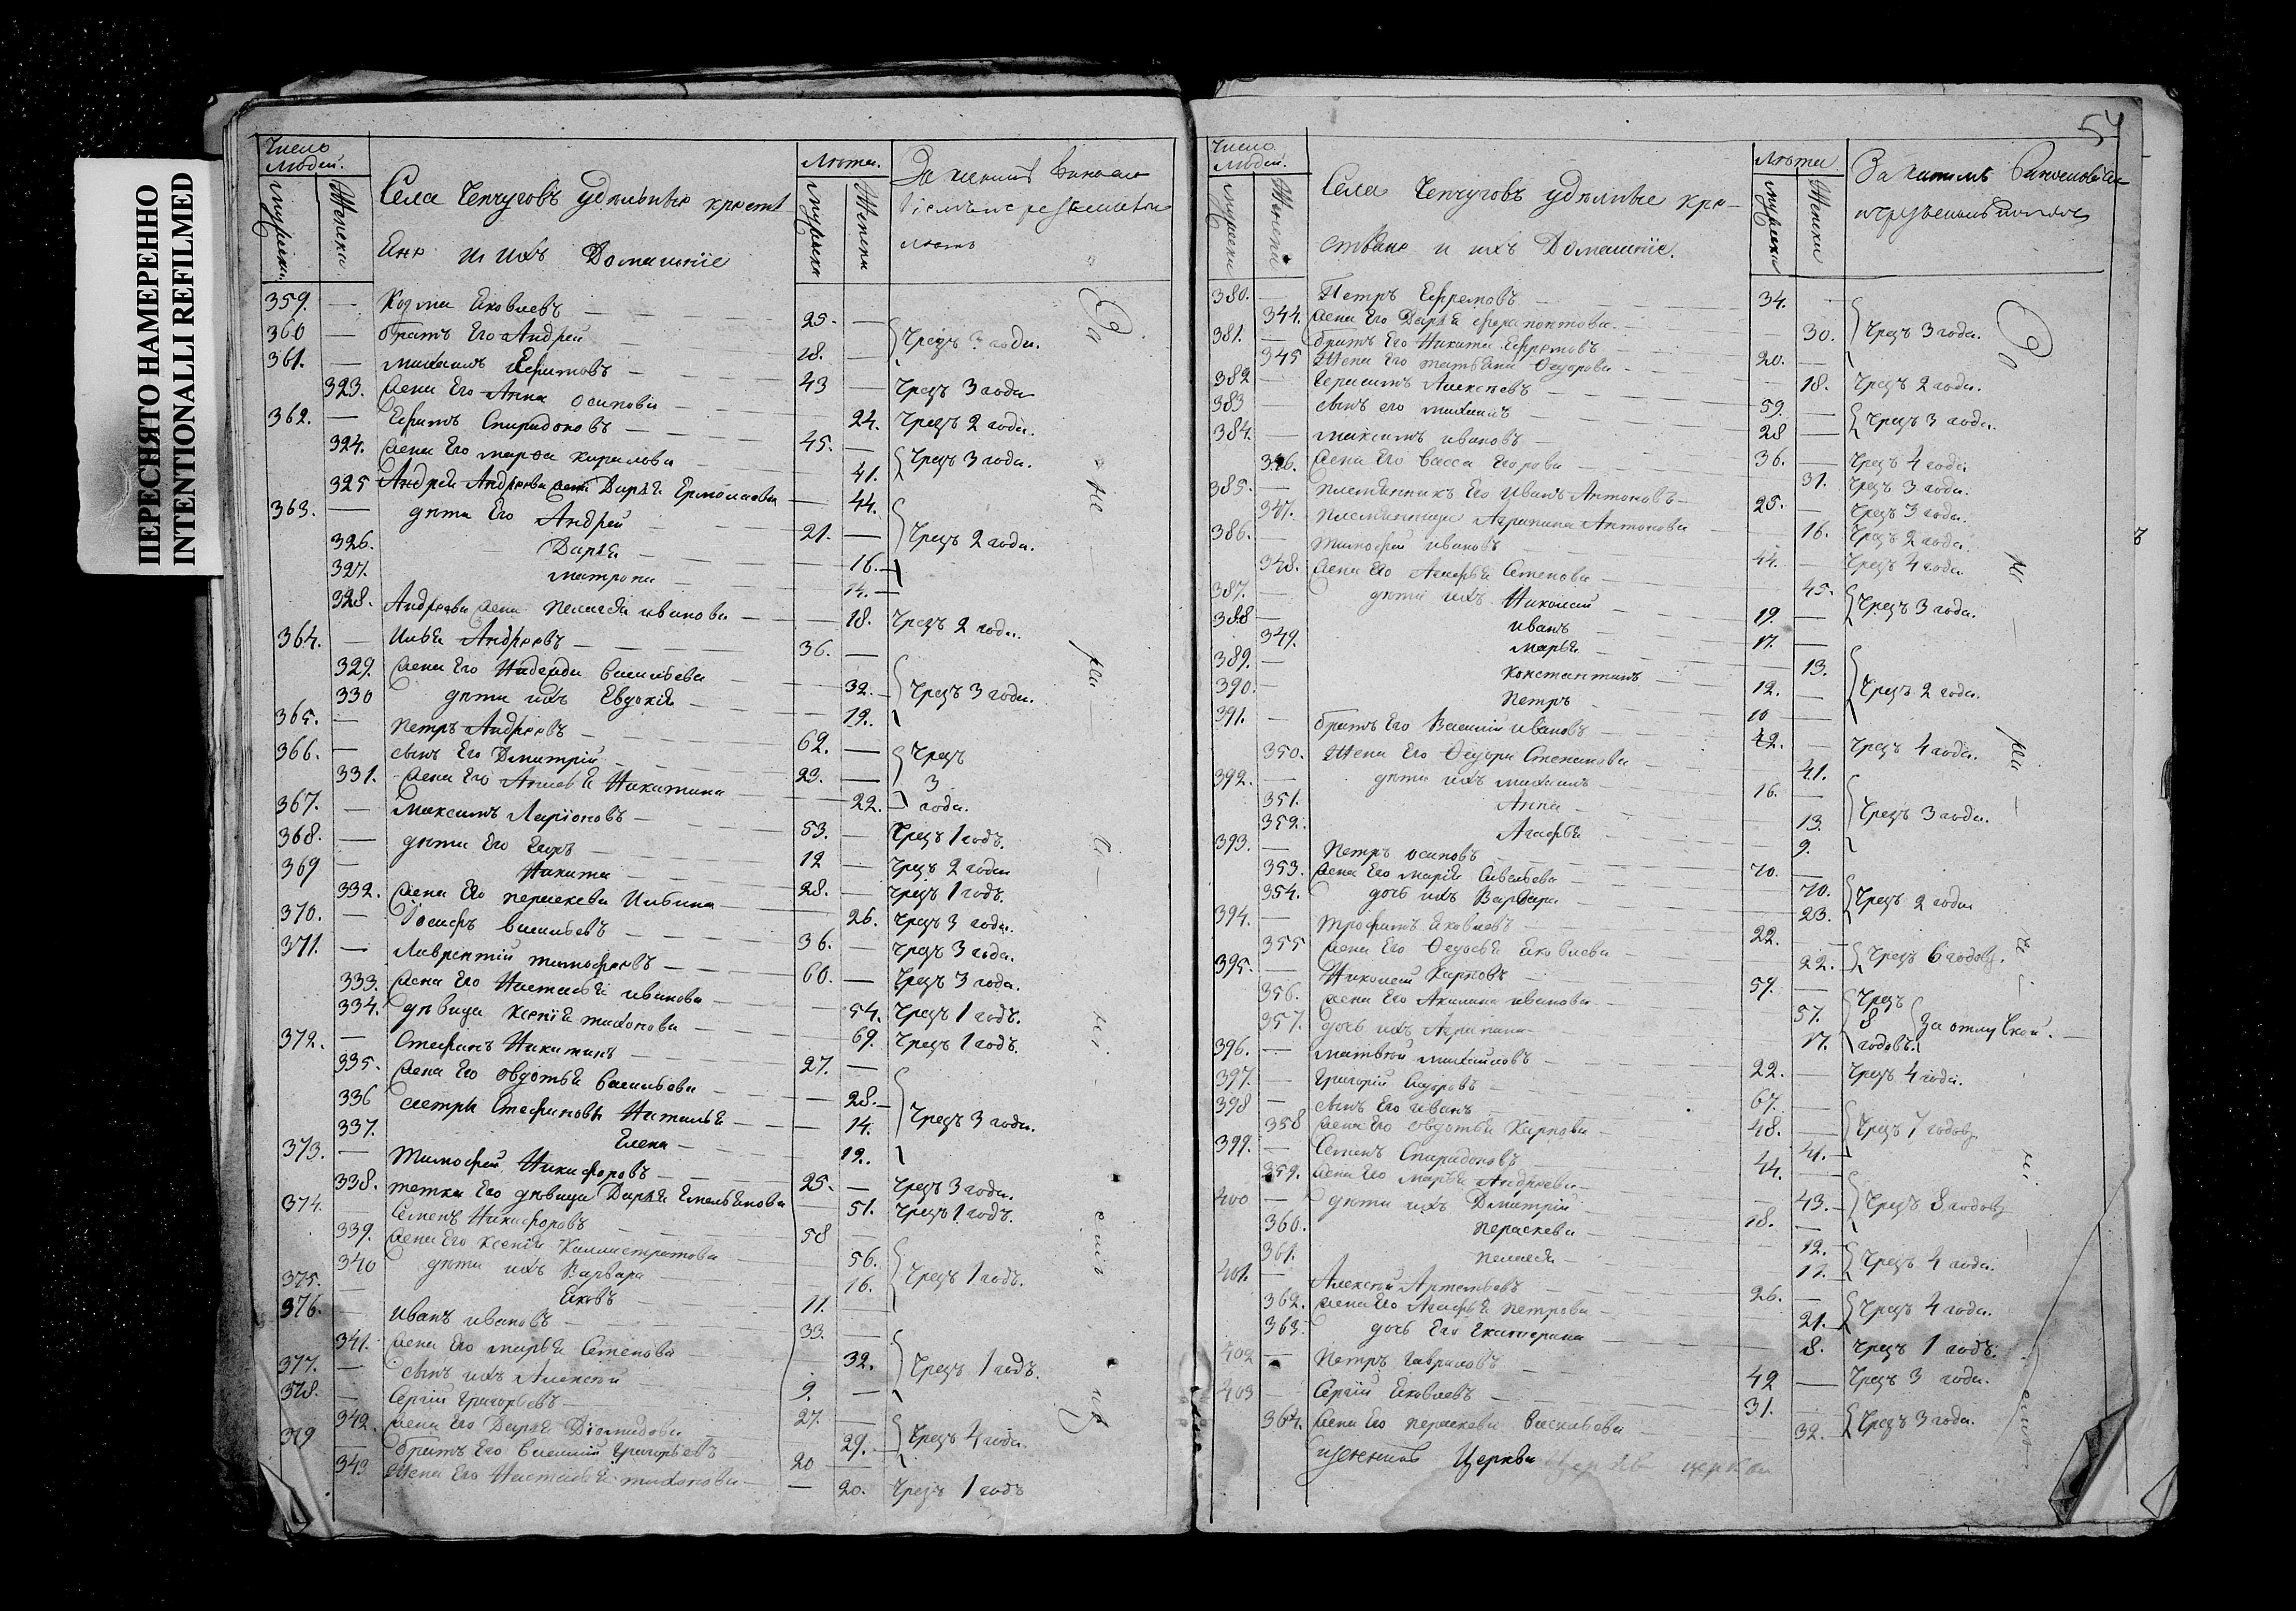 ПЕРЕСНЯТО НАМЕРЕННО
INTENTIONALLI REFILMED
Число людей.
Мужска.
Женска
Села Чепчуговъ удѣльные крестьяне и ихъ Домашніе
Лѣта.
Мужска
Женска
359. — Козма Яковлевъ — 25. —
360 — братъ Его Андрей — 18. — Чрезъ 3 года.
361. — михаилъ Ефимовъ — 43 — Чрезъ 3 года
323. жена Его Анна осипова — 24. Чрезъ 2 года.
362. — Ефимъ Спиридоновъ — 45. —
324. жена Его марѳа кирилова — 41. Чрезъ 3 года.
325 Дарья Ермолаева — 44.
363. — дѣти Его Андрей — 21. — Чрезъ 2 года.
326. Дарья — 16.
327. матрона — 14.
328. Андреева жена пелагея иванова — 18. Чрезъ 2 года.
364. — Илья Андреевъ — 36. —
329. жена Его Надежда васильева — 32. Чрезъ 3 года.
330 дѣти ихъ Евдокія — 12.
365. — петръ Андреевъ — 62. — Чрезъ
366. — сынъ Его Дмитрій — 23. — 3
331. жена Его Никитина — 22. года.
367. — максимъ Ларіоновъ — 53. — Чрезъ 1 годъ.
368. — дѣти Его Егоръ — 12 — Чрезъ 2 года
369 — Никита — 28. — Чрезъ 1 годъ.
332. жена Его параскева Ильина — 26. Чрезъ 3 года.
370. — Іосифъ васильевъ — 36. — Чрезъ 3 года.
371. — Лаврентій тимофеевъ — 60. — Чрезъ 3 года.
333. жена Его Настасья иванова — 54. Чрезъ 1 годъ.
334. дѣвица ксенія тихонова — 69. Чрезъ 1 годъ.
372. — Стефанъ Никитинъ — 27. —
335. жена Его овдотья васильева — 28.
336 сестры Стефановы Наталья — 14. Чрезъ 3 года.
337. Елена — 12.
373. — тимофей Никифоровъ — 25. — Чрезъ 3 года.
338. тетка Его дѣвица Дарья Емельянова — 51. Чрезъ 1 годъ.
374. Семенъ Никифоровъ — 58
339. жена Его ксенія Каллистратова — 56.
340 дѣти ихъ Варвара — 16. Чрезъ 1 годъ.
375. — Яковъ — 11. —
376. иванъ ивановъ — 33. —
341. жена Его марья Семенова — 32. Чрезъ 1 годъ.
377. — сынъ ихъ Алексей — 9. —
378. — Сергій Григорьевъ — 27. —
342. жена Его Дарья Діомидова — 29. Чрезъ 4 года.
379 — братъ Его василій Григорьевъ — 20 —
343 жена Его Настасья тихонова — 20. Чрезъ 1 годъ
54
Число людей.
Мужска
Женска
Села Чепчуговъ удѣльные крестьяне и ихъ Домашніе.
Лѣта
Мужска
Женска
380. — Петръ Ефремовъ — 34. —
344. жена Его Дарья ферапонтова — 30. Чрезъ 3 года.
381. — братъ Его Никита Ефремовъ — 20. —
345 жена Его татьяна Ѳедорова — 18. Чрезъ 2 года.
382 — Герасимъ Алексеевъ — 59. —
383 — сынъ его михаилъ — 28 — Чрезъ 3 года.
384. — максимъ ивановъ — 36. — Чрезъ 4 года
346. жена Его васса Егорова — 31. Чрезъ 3 года.
385. — племянникъ Его иванъ Антоновъ — 25. — Чрезъ 3 года.
347. племянница Агрипина Антонова — 16. Чрезъ 2 года.
386. — тимофей ивановъ — 44. — Чрезъ 4 года.
348. жена Его Агафья Семенова — 45.
387. — дѣти ихъ Николай — 19. — Чрезъ 3 года.
388 — иванъ — 17. —
349. марья — 13.
389. — константинъ — 12. — Чрезъ 2 года.
390. — петръ — 10 —
391. — братъ Его Василій ивановъ — 42. — Чрезъ 4 года.
350. жена Его Ѳедора Степанова — 41.
392. — дѣти ихъ михаилъ — 16. —
351. Анна — 13. Чрезъ 3 года.
352. Агафья — 9.
393. — петръ осиповъ — 70. —
353. жена Его марія Савельева — 70.
354. дочь ихъ Варвара — 23. Чрезъ 2 года
394. — трофимъ Яковлевъ — 22. —
355 жена Его Ѳедосья Яковлева — 22. Чрезъ 6 годовъ.
395. — Николай Карповъ — 59. — Чрезъ
356. жена Его Акилина иванова — 57. 8 За отлучкой.
357. дочь ихъ Агрипина — 17. годовъ.
396. — матвей михайловъ — 22. — Чрезъ 4 года.
397. — Григорій Сидоровъ — 67. —
398 — сынъ Его иванъ — 48. — Чрезъ 7 годовъ.
358 жена Его овдотья Карпова — 41.
399. — Семенъ Спиридоновъ — 44. —
359. жена Его марья Андреева — 43. Чрезъ 8 годовъ
400 — дѣти ихъ Дмитрій — 18. —
360. параскева — 12.
361. пелагея — 11. Чрезъ 4 года.
401. — Алексей Артемьевъ — 26. —
362. жена Его Агафья петрова — 21. Чрезъ 4 года.
363. дочь Его Екатерина — 8. Чрезъ 1 годъ.
402 — петръ гавриловъ — 42 — Чрезъ 3 года.
403 — Сергій Яковлевъ — 31. —
364. жена Его параскева васильева — 32. Чрезъ 3 года.
Церкви